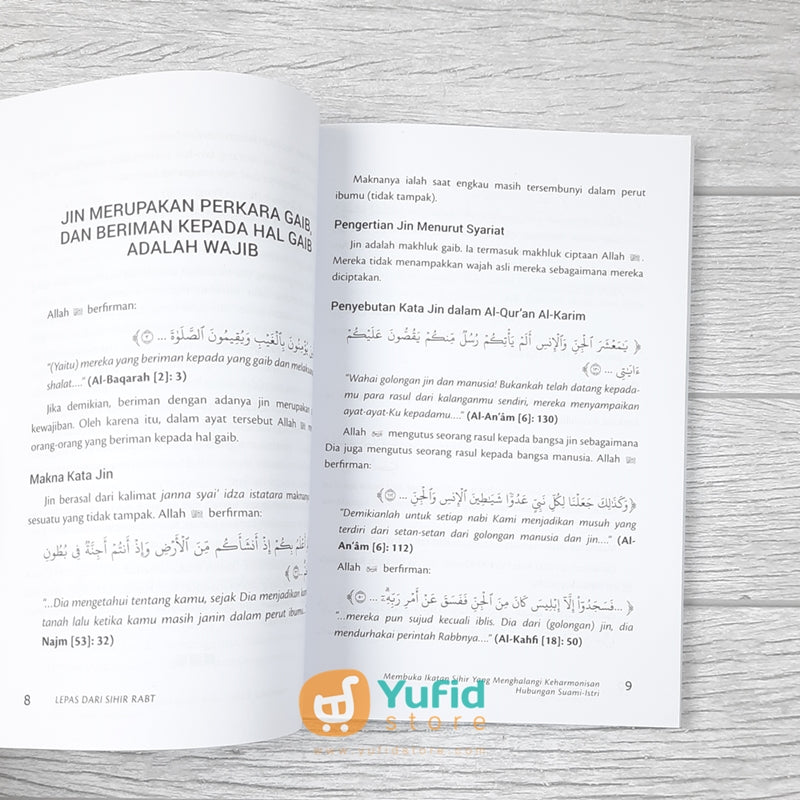 JIN MERUPAKAN PERKARA GAIB,
DAN BERIMAN KEPADA HAL GAIB
ADALAH WAJIB
Allah ﷻ berfirman:
يُؤْمِنُونَ بِالْغَيْبِ وَيُقِيمُونَ الصَّلَوٰةَ ... ﴿٣﴾
"(Yaitu) mereka yang beriman kepada yang gaib dan
shalat...." (Al-Baqarah [2]: 3)
Jika demikian, beriman dengan adanya jin merupakan
kewajiban. Oleh karena itu, dalam ayat tersebut Allah ﷻ
orang-orang yang beriman kepada hal gaib.
Makna Kata Jin
Jin berasal dari kalimat janna syai' idza istatara
sesuatu yang tidak tampak. Allah ﷻ berfirman:
أَعْلَمُ بِكُمْ إِذْ أَنشَأَكُم مِّنَ الْأَرْضِ وَإِذْ أَنتُمْ أَجِنَّةٌ فِى بُطُونِ
"...Dia mengetahui tentang kamu, sejak Dia menjadikan
tanah lalu ketika kamu masih janin dalam perut ibumu...
Najm [53]: 32)
8 LEPAS DARI SIHIR RABT
Maknanya ialah saat engkau masih tersembunyi dalam perut
ibumu (tidak tampak).
Pengertian Jin Menurut Syariat
Jin adalah makhluk gaib. Ia termasuk makhluk ciptaan Allah ﷻ.
Mereka tidak menampakkan wajah asli mereka sebagaimana mereka
diciptakan.
Penyebutan Kata Jin dalam Al-Qur'an Al-Karim
﴿ يَـٰمَعْشَرَ الْجِنِّ وَالْإِنسِ أَلَمْ يَأْتِكُمْ رُسُلٌ مِّنكُمْ يَقُصُّونَ عَلَيْكُمْ
ءَايَـٰتِى ... ﴿١٣٠﴾
"Wahai golongan jin dan manusia! Bukankah telah datang kepada-
mu para rasul dari kalanganmu sendiri, mereka menyampaikan
ayat-ayat-Ku kepadamu...." (Al-An'âm [6]: 130)
Allah ﷻ mengutus seorang rasul kepada bangsa jin sebagaimana
Dia juga mengutus seorang rasul kepada bangsa manusia. Allah ﷻ
berfirman:
﴿ وَكَذَٰلِكَ جَعَلْنَا لِكُلِّ نَبِىٍّ عَدُوًّا شَيَـٰطِينَ الْإِنسِ وَالْجِنِّ ... ﴿١١٢﴾
"Demikianlah untuk setiap nabi Kami menjadikan musuh yang
terdiri dari setan-setan dari golongan manusia dan jin...." (Al-
An'âm [6]: 112)
Allah ﷻ berfirman:
﴿ ...فَسَجَدُوٓا۟ إِلَّآ إِبْلِيسَ كَانَ مِنَ الْجِنِّ فَفَسَقَ عَنْ أَمْرِ رَبِّهِۦٓ ... ﴿٥٠﴾
"...mereka pun sujud kecuali iblis. Dia dari (golongan) jin, dia
mendurhakai perintah Rabbnya...." (Al-Kahfi [18]: 50)
Membuka Ikatan Sihir Yang Menghalangi Keharmonisan
Hubungan Suami-Istri 9
Yufid
store
www.yufidstore.com